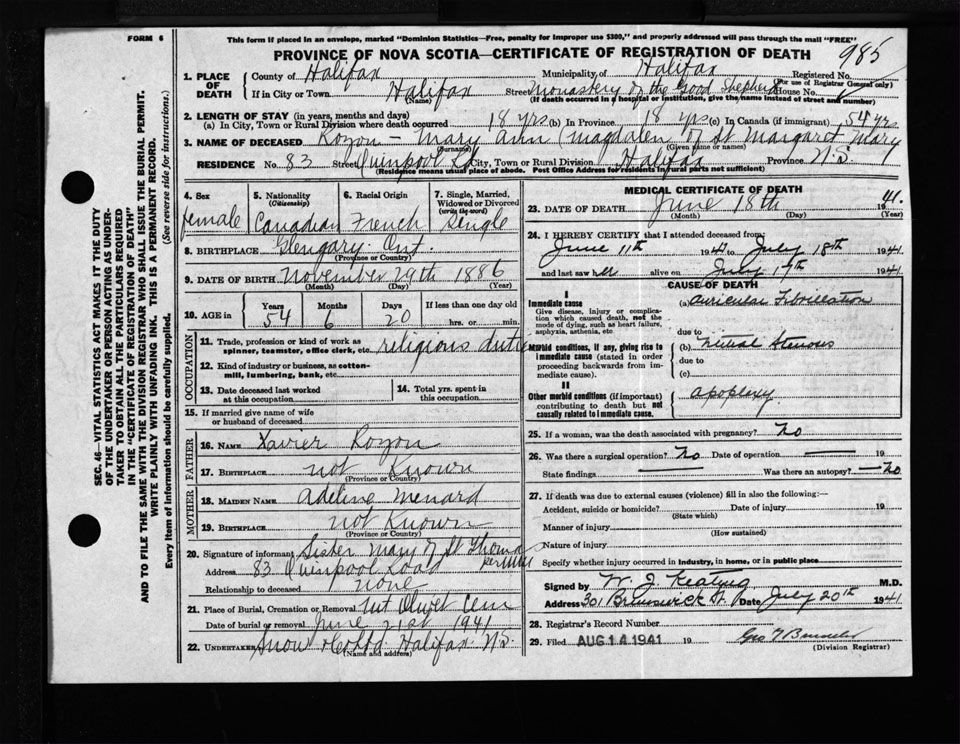 FORM 6
This form if placed in an envelope, marked "Dominion Statistics—Free, penalty for improper use $300," and properly addressed will pass through the mail "FREE"
PROVINCE OF NOVA SCOTIA—CERTIFICATE OF REGISTRATION OF DEATH
985
1. PLACE OF DEATH
County of Halifax Municipality of Halifax Registered No.
(For use of Registrar General only)
If in City or Town Halifax Street Monastery of the Good Shepherd House No.
(Name) (If death occurred in a hospital or institution, give the name instead of street and number)
2. LENGTH OF STAY (in years, months and days)
(a) In City, Town or Rural Division where death occurred 18 yrs (b) In Province 18 yrs (c) In Canada (if immigrant) 54 yrs
3. NAME OF DECEASED Rozon - Mary Ann (Magdalen of St Margaret Mary
(Surname) (Given name or names)
RESIDENCE No. 83 Street Quinpool Rd City, Town or Rural Division Halifax Province N.S.
(Residence means usual place of abode. Post Office Address for residents in rural parts not sufficient)
4. Sex female
5. Nationality (Citizenship) Canadian
6. Racial Origin French
7. Single, Married, Widowed or Divorced (write the word) Single
8. BIRTHPLACE Glengary. Ont.
(Province or Country)
9. DATE OF BIRTH November 29th 1886
(Month) (Day) (Year)
10. AGE in Years 54 Months 6 Days 20 If less than one day old hrs. or min.
OCCUPATION
11. Trade, profession or kind of work as spinner, teamster, office clerk, etc. religious duties
12. Kind of industry or business, as cotton-mill, lumbering, bank, etc.
13. Date deceased last worked at this occupation
14. Total yrs. spent in this occupation
15. If married give name of wife or husband of deceased
FATHER
16. NAME Xavier Rozon
17. BIRTHPLACE not Known
(Province or Country)
MOTHER
18. MAIDEN NAME Adeline Menard
19. BIRTHPLACE not Known
(Province or Country)
20. Signature of informant Sister Mary of St Thomas
Address 83 Quinpool Road
Relationship to deceased none
21. Place of Burial, Cremation or Removal Mt Olivet Cem
Date of burial or removal June 21st 1941
22. UNDERTAKER Snow & Co Ltd Halifax N.S.
(Name and address)
MEDICAL CERTIFICATE OF DEATH
23. DATE OF DEATH June 18th 1941.
(Month) (Day)
24. I HEREBY CERTIFY that I attended deceased from:
June 11th 1941 to July 18th 1941
and last saw her alive on July 17th 1941
CAUSE OF DEATH
I
Immediate cause
Give disease, injury or complication which caused death, not the mode of dying, such as heart failure, asphyxia, asthenia, etc
(a) Auricular Fibrillation
due to
Morbid conditions, if any, giving rise to immediate cause (stated in order proceeding backwards from immediate cause).
(b) Mitral Stenosis
due to
(c)
II
Other morbid conditions (if important) contributing to death but not causally related to immediate cause.
apoplexy.
25. If a woman, was the death associated with pregnancy? No
26. Was there a surgical operation? No Date of operation 19
State findings Was there an autopsy? No
27. If death was due to external causes (violence) fill in also the following:—
Accident, suicide or homicide? Date of injury 19
(State which)
Manner of injury
(How sustained)
Nature of injury
Specify whether injury occurred in industry, in home, or in public place
Signed by W. J. Keating M.D.
Address 301 Brunswick St. Date July 20th 1941
28. Registrar's Record Number
29. Filed AUG 14 1941 19
(Division Registrar)
SEC. 46—VITAL STATISTICS ACT MAKES IT THE DUTY
OF THE UNDERTAKER OR PERSON ACTING AS UNDER-
TAKER TO OBTAIN ALL THE PARTICULARS REQUIRED
IN THE "CERTIFICATE OF REGISTRATION OF DEATH"
AND TO FILE THE SAME WITH THE DIVISION REGISTRAR WHO SHALL ISSUE THE BURIAL PERMIT.
WRITE PLAINLY WITH UNFADING INK. THIS IS A PERMANENT RECORD.
Every item of information should be carefully supplied. (See reverse side for instructions.)